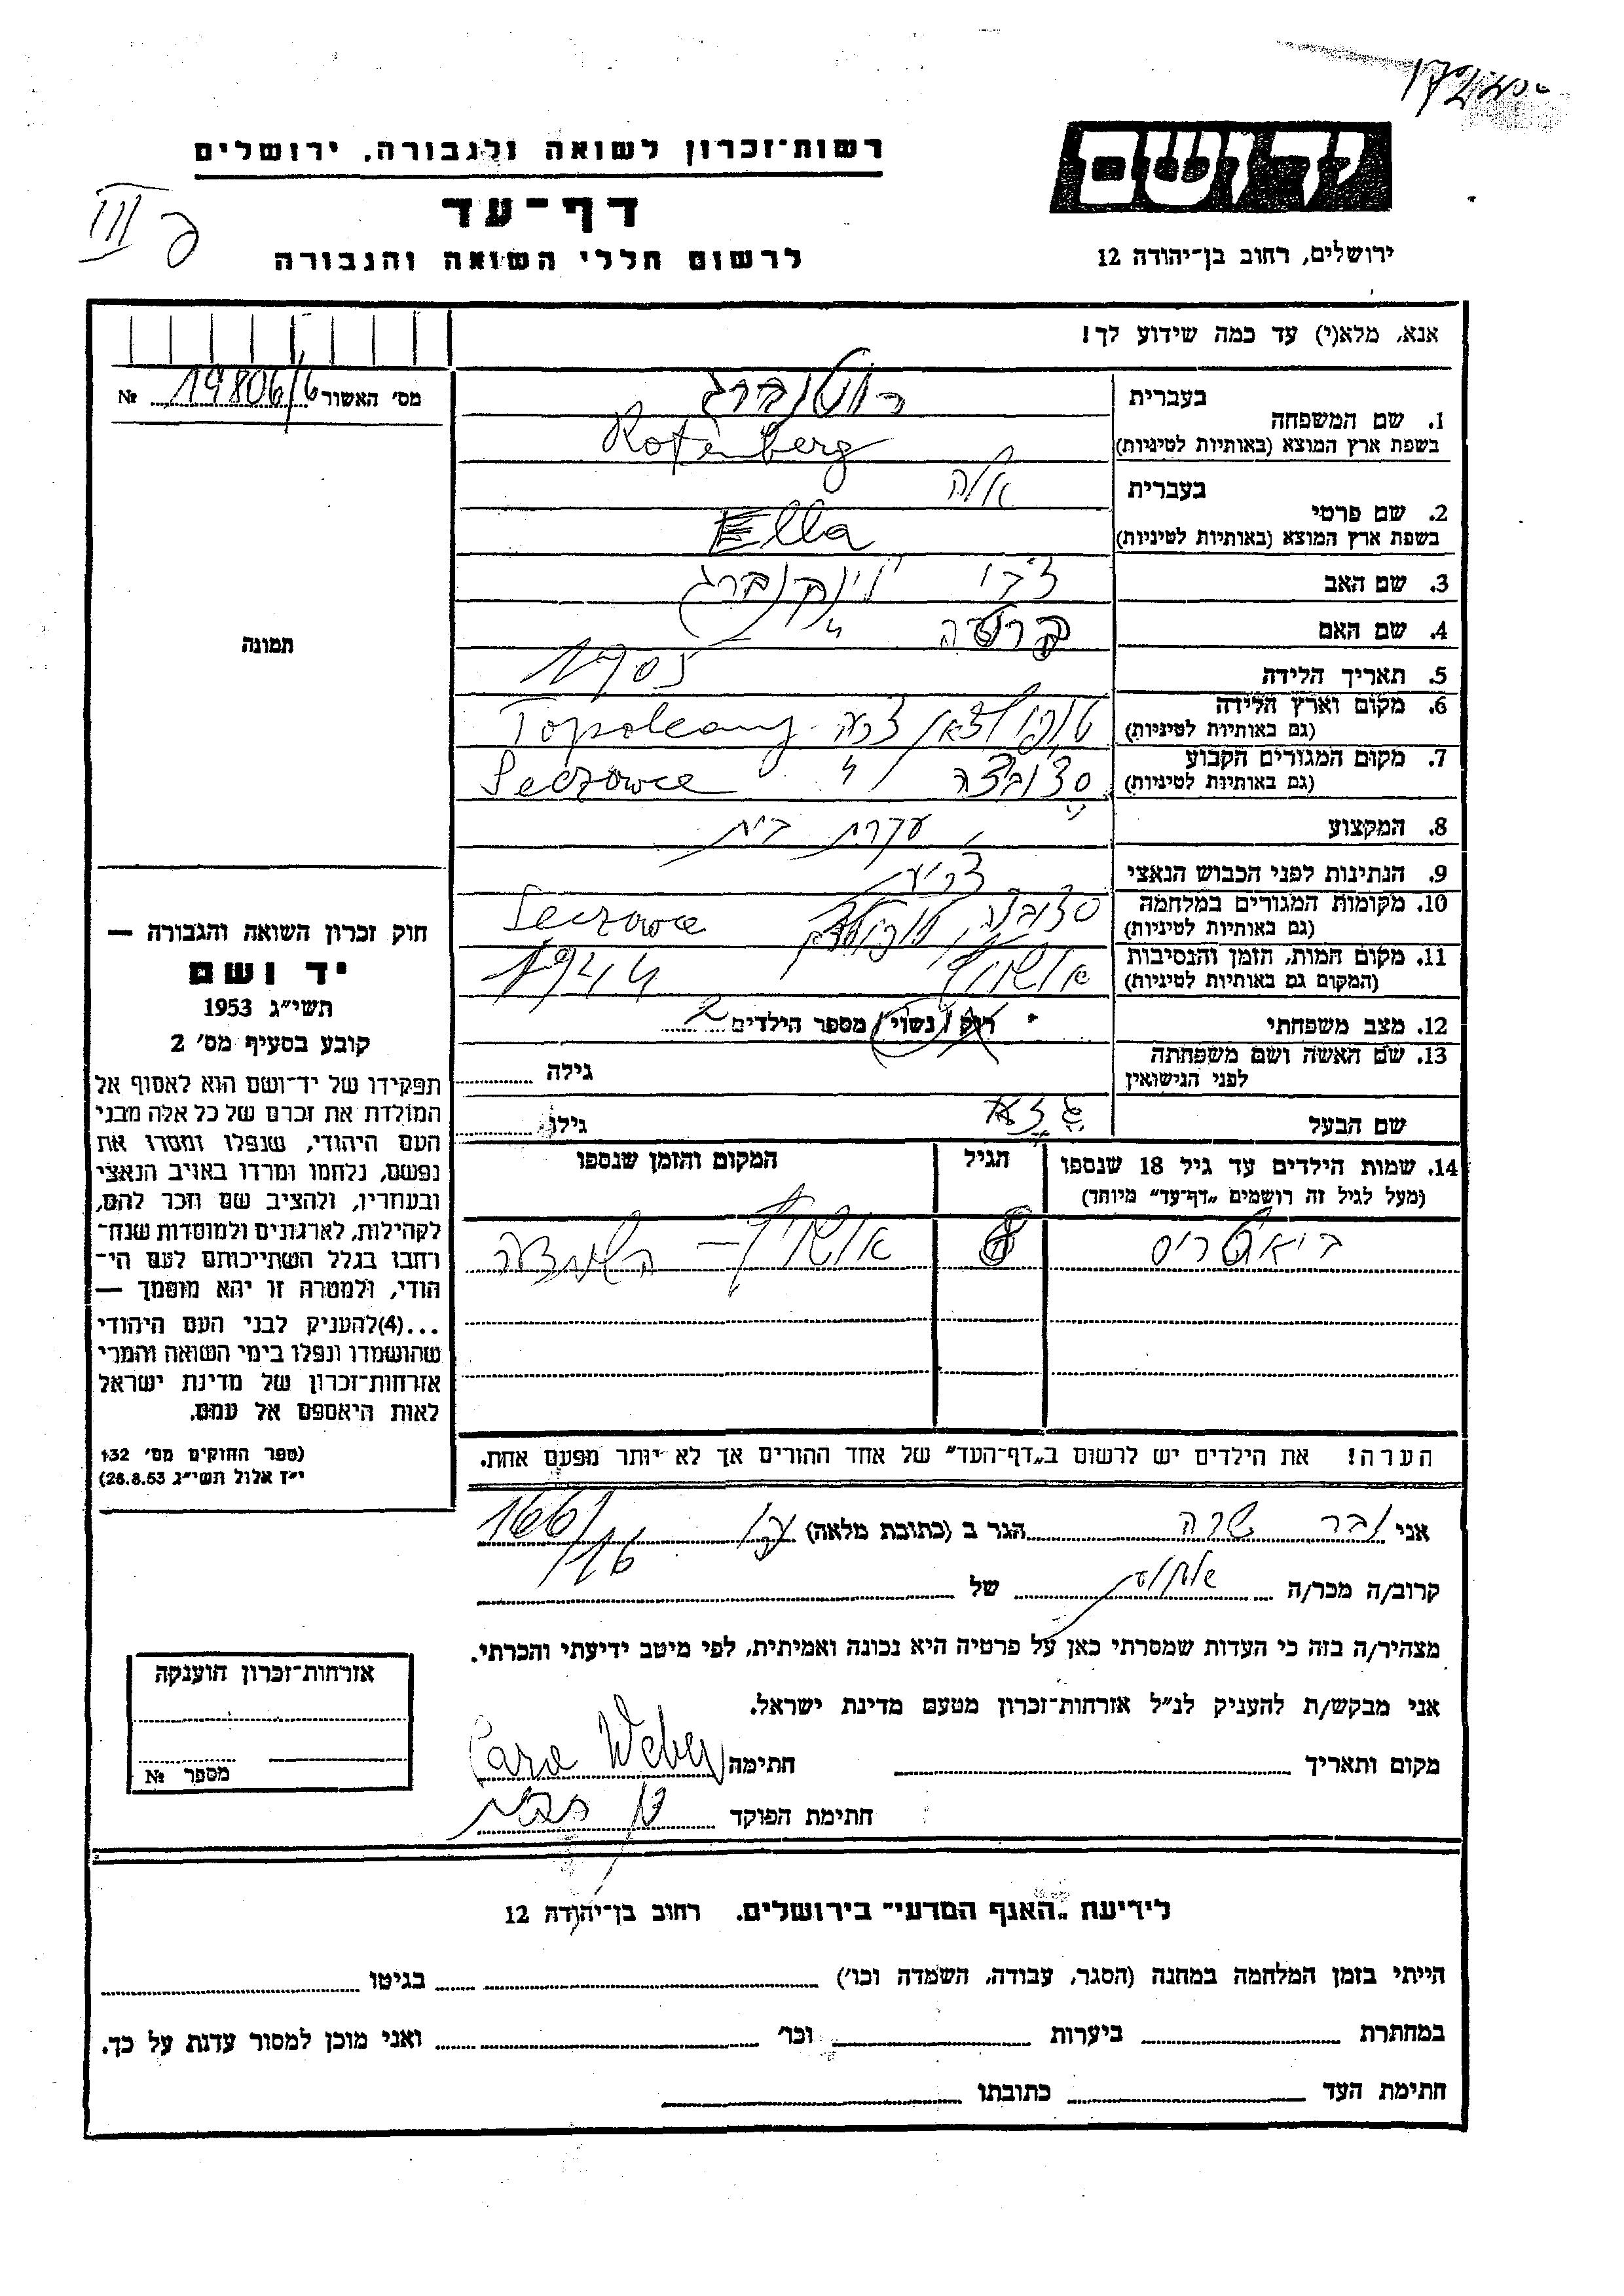 יד ושם
רשות־זכרון לשואה ולגבורה, ירושלים
דף־עד
לרשום חללי השואה והגבורה
ירושלים, רחוב בן־יהודה 12
III
אנא, מלא(י) עד כמה שידוע לך!
מס׳ האשור 19806/6 №
1. שם המשפחה
בעברית רוטנברג
בשפת ארץ המוצא (באותיות לטיניות) Rotenberg
2. שם פרטי
בעברית אלה
בשפת ארץ המוצא (באותיות לטיניות) Ella
3. שם האב צבי
4. שם האם ברטה
5. תאריך הלידה 1905
6. מקום וארץ הלידה
(גם באותיות לטיניות) Topolcany
7. מקום המגורים הקבוע
(גם באותיות לטיניות) Seczowce
8. המקצוע עקרת בית
9. הנתינות לפני הכבוש הנאצי
10. מקומות המגורים במלחמה
(גם באותיות לטיניות) Seczowce
11. מקום המות, הזמן והנסיבות
(המקום גם באותיות לטיניות) אושויץ 1944
12. מצב משפחתי רווק / נשוי / מספר הילדים 2
13. שם האשה ושם משפחתה
לפני הנישואין גילה
שם הבעל גילו
14. שמות הילדים עד גיל 18 שנספו
(מעל לגיל זה רושמים „דף־עד” מיוחד)
הגיל
המקום והזמן שנספו
ביאטריס 8 אושויץ –
הערה! את הילדים יש לרשום ב„דף־העד” של אחד ההורים אך לא יותר מפעם אחת.
תמונה
חוק זכרון השואה והגבורה —
יד ושם
תשי״ג 1953
קובע בסעיף מס׳ 2
תפקידו של יד־ושם הוא לאסוף אל
המולדת את זכרם של כל אלה מבני
העם היהודי, שנפלו ומסרו את
נפשם, נלחמו ומרדו באויב הנאצי
ובעוזריו, ולהציב שם וזכר להם,
לקהילות, לארגונים ולמוסדות שנח־
רבו בגלל השתייכותם לעם הי־
הודי, ולמטרה זו יהא מוסמך —
...(4) להעניק לבני העם היהודי
שהושמדו ונפלו בימי השואה והמרי
אזרחות־זכרון של מדינת ישראל
לאות היאספם אל עמם.
(ספר החוקים מס׳ 132
י״ז אלול תשי״ג 28.8.53)
אני ובר שרה הגר ב (כתובת מלאה) עכו 166/16
קרוב/ה מכר/ה של
מצהיר/ה בזה כי העדות שמסרתי כאן על פרטיה היא נכונה ואמיתית, לפי מיטב ידיעתי והכרתי.
אני מבקש/ת להעניק לנ״ל אזרחות־זכרון מטעם מדינת ישראל.
מקום ותאריך חתימה Weber
חתימת הפוקד
אזרחות־זכרון הוענקה
מספר №
לידיעת „האגף המדעי” בירושלים. רחוב בן־יהודה 12
הייתי בזמן המלחמה במחנה (הסגר, עבודה, השמדה וכו׳) בגיטו
במחתרת ביערות וכו׳ ואני מוכן למסור עדות על כך.
חתימת העד כתובתו